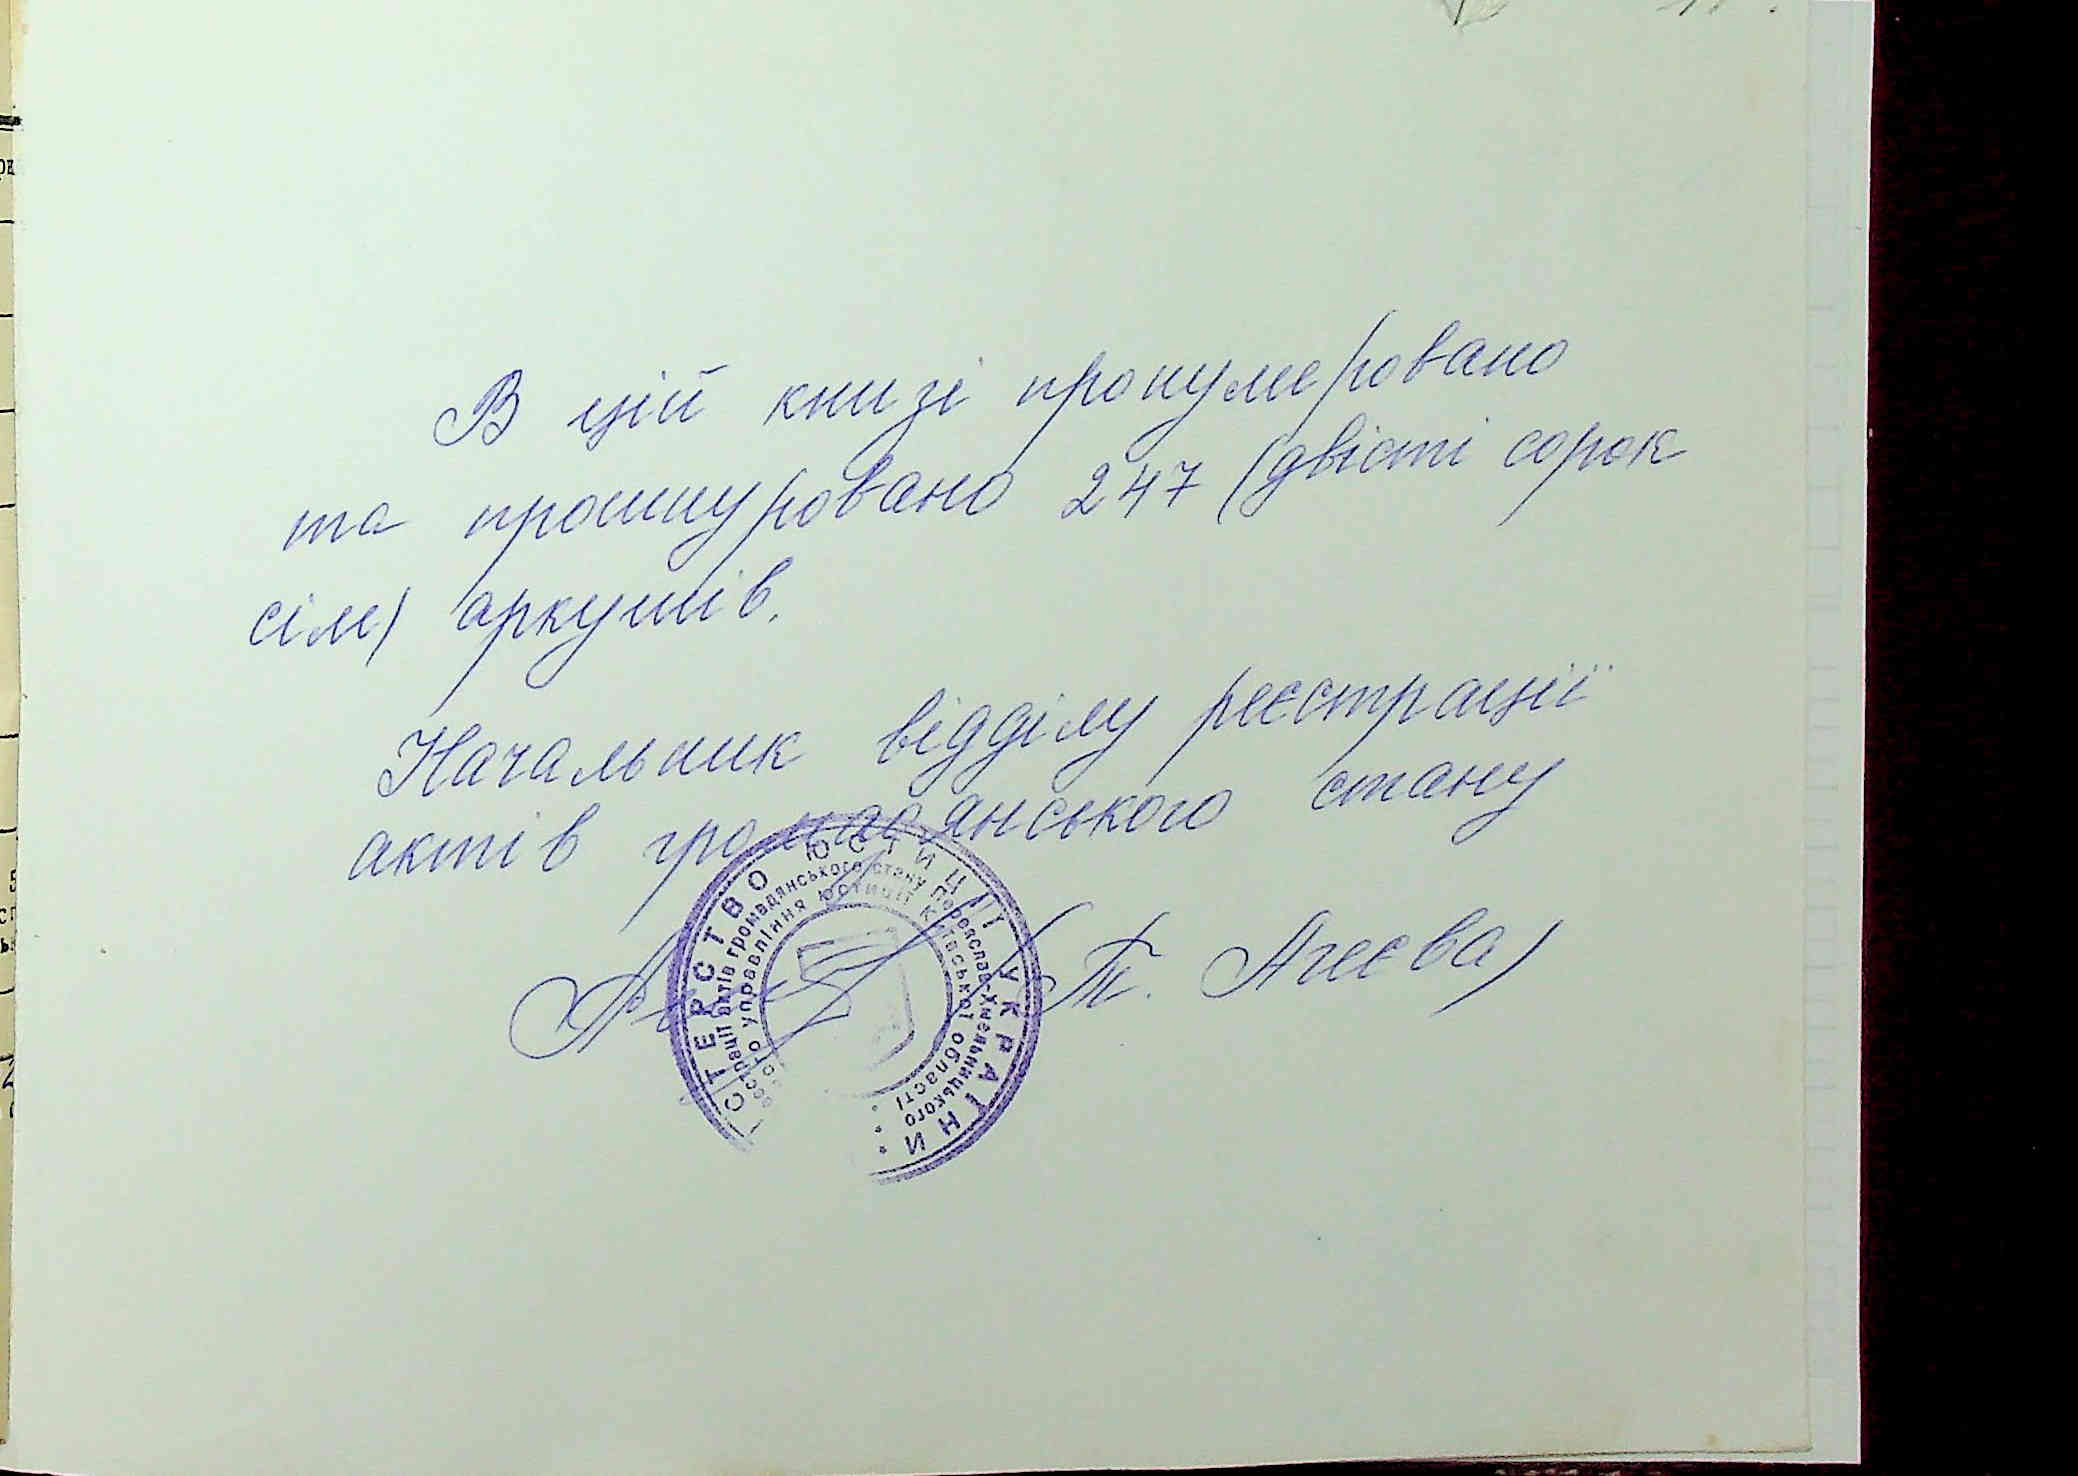 В цій книзі пронумеровано
та прошнуровано 247 (двісті сорок
сім) аркушів.
Начальник відділу реєстрації
актів громадянського стану
(Т. Агеєва)
СТЕРСТВО ЮСТИЦІЇ УКРАЇНИ
актів громадянського стану Переяслав-Хмельницького
управління юстиції Київської області